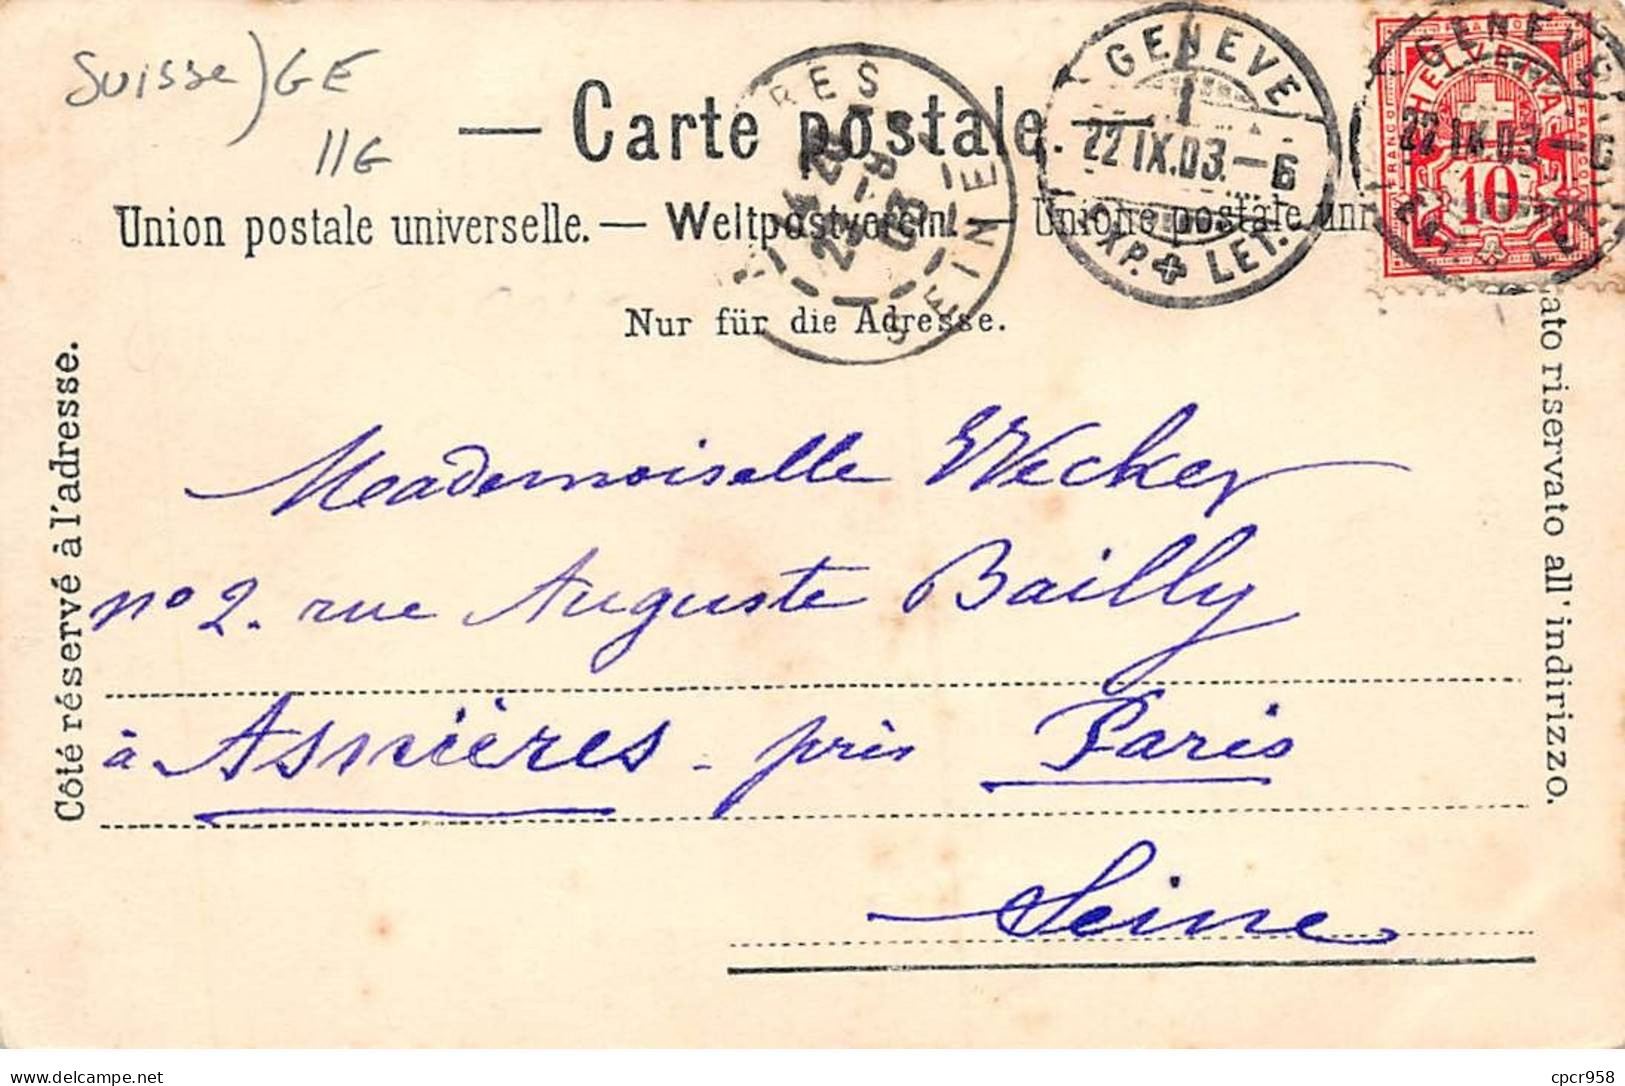 Suisse) GE
11G
— Carte postale. —
Union postale universelle. — Weltpostverein. — Unione postale uni
Nur für die Adresse.
Côté réservé à l'adresse.
ato riservato all' indirizzo.
GENEVE
22 IX.03. — 6
EXP. LET.
GENEVE
22 IX.03. — 6
HELVETIA
FRANCO
10
RES
SEINE
03
Mademoiselle Wecker
nº 2. rue Auguste Bailly
à Asnières - près Paris
Seine
delcampe.net
cpcr958